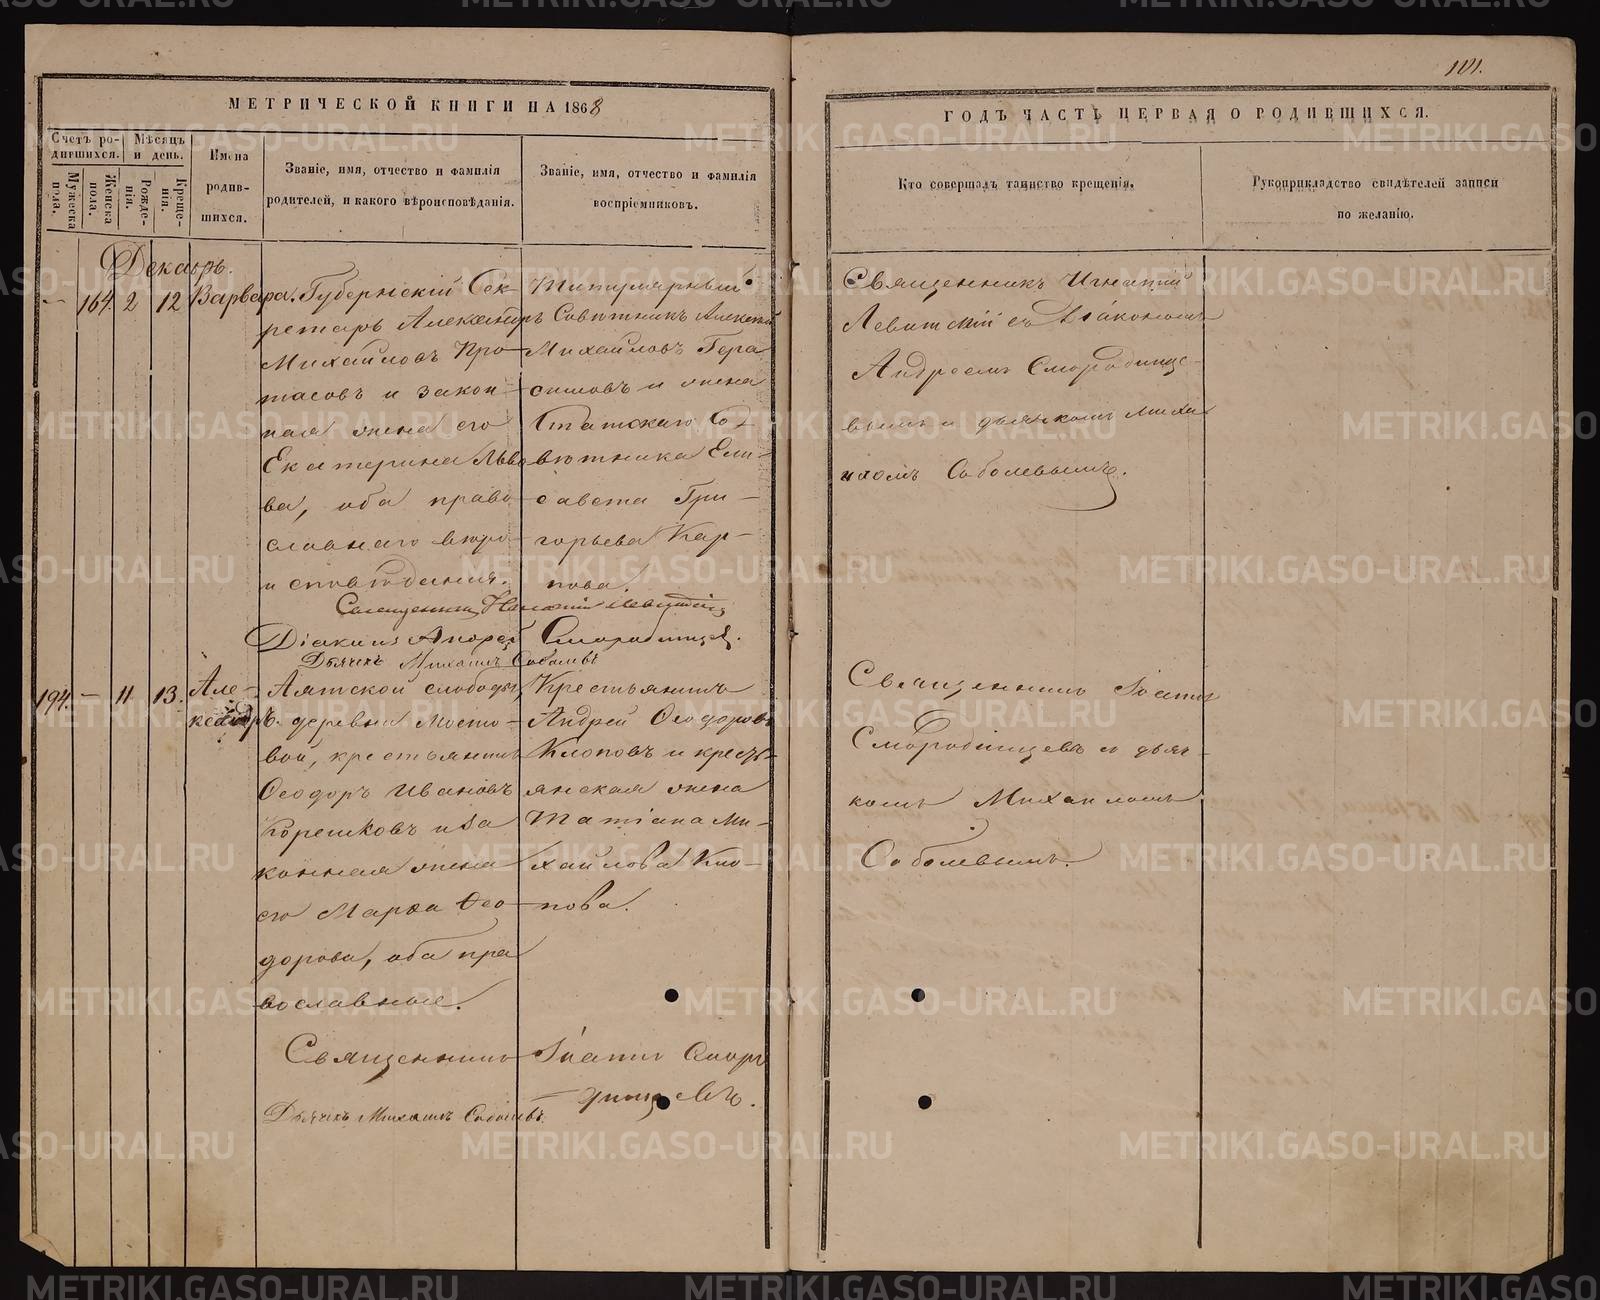 101.
МЕТРИЧЕСКОЙ КНИГИ НА 1868
ГОДЪ ЧАСТЬ ПЕРВАЯ О РОДИВШИХСЯ.
Счетъ родившихся.
Мужеска пола.
Женска пола.
Мѣсяцъ и день.
Рожденія.
Крещенія.
Имена родившихся.
Званіе, имя, отчество и фамилія
родителей, и какого вѣроисповѣданія.
Званіе, имя, отчество и фамилія
воспріемниковъ.
Кто совершалъ таинство крещенія.
Рукоприкладство свидѣтелей записи
по желанію.
Декабрь.
— 164. 2 12 Варвара.
Губернскій Сек-
ретарь Александръ
Михайловъ Про-
тасовъ и закон-
ная жена его
Екатерина Льво
ва, оба право-
славнаго вѣро-
исповѣданія.
Титулярный
Совѣтникъ Алексѣй
Михайловъ Гера
симовъ и жена
Статскаго Со-
вѣтника Ели-
савета Гри-
горьева Кар-
пова.
Священникъ Игнатій
Левитскій съ Діакономъ
Андреемъ Смородинце-
вымъ и дьячкомъ Миха
иломъ Соболевымъ.
Священникъ Игнатій Левитскій
Діаконъ Андрей Смородинцев.
Дьячекъ Михаилъ Соболевъ
194. — 11 13. Але-
ксандръ.
Аятской слободы,
деревни Мосто-
вой, крестьянинъ
Ѳеодоръ Ивановъ
Корешковъ и за
конная жена
его Марѳа Ѳео-
дорова, оба пра
вославные.
Крестьянинъ
Андрей Ѳеодоровъ
Клоповъ и кресть-
янская жена
Татіана Ми-
хайлова Кло-
пова.
Священникъ Іоаннъ
Смородинцевъ и дьяч-
комъ Михаиломъ
Соболевымъ.
Священникъ Іоаннъ Смор
динцевъ.
Дьячекъ Михаилъ Соболевъ.
METRIKI.GASO-URAL.RU